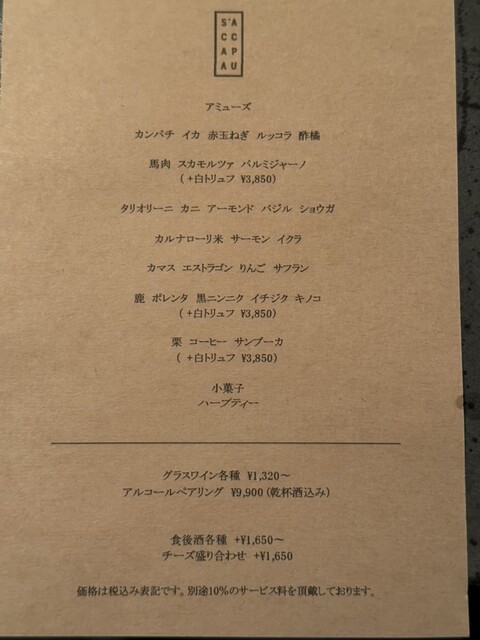 S'ACCAPAU
アミューズ
カンパチ イカ 赤玉ねぎ ルッコラ 酢橘
馬肉 スカモルツァ パルミジャーノ
( +白トリュフ ¥3,850)
タリオリーニ カニ アーモンド バジル ショウガ
カルナローリ米 サーモン イクラ
カマス エストラゴン りんご サフラン
鹿 ポレンタ 黒ニンニク イチジク キノコ
( +白トリュフ ¥3,850)
栗 コーヒー サンブーカ
( +白トリュフ ¥3,850)
小菓子
ハーブティー
グラスワイン各種 ¥1,320～
アルコールペアリング ¥9,900(乾杯酒込み)
食後酒各種 +¥1,650～
チーズ盛り合わせ +¥1,650
価格は税込み表記です。別途10%のサービス料を頂戴しております。